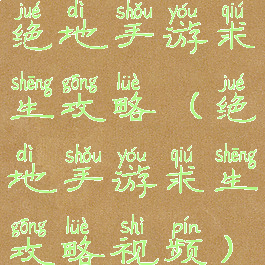 jué dì shǒu yóu qiú
绝地手游求
shēng gōng lüè jué
生攻略（绝
dì shǒu yóu qiú shēng
地手游求生
gōng lüè shì pín
攻略视频）